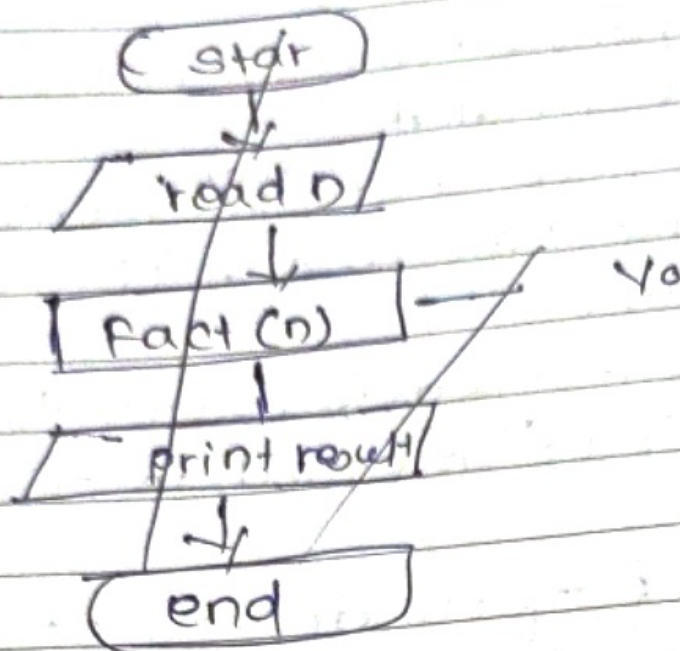 star
read n
Fact (n)
print result
end